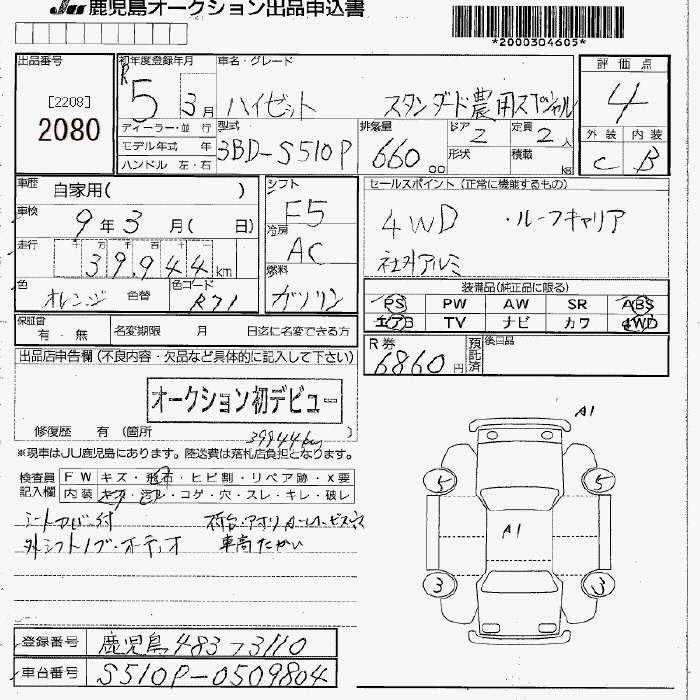 JU 鹿児島オークション出品申込書
*2000304605*
出品番号
[2208]
2080
初年度登録年月
R5 3月
ディーラー・並行
モデル年式 年
ハンドル 左・右
車名・グレード
ハイゼット スタンダード農用スペシャル
型式
3BD-S510P
排気量
660 00
ドア 2
定員 2人
形状
積載 kg
評価点
4
外装 内装
C B
車歴 自家用( )
車検 9年3月( 日)
走行 十万千百十一
39,944km
色 オレンジ 色替 色コード R71
シフト
F5
冷房
AC
燃料
ガソリン
セールスポイント(正常に機能するもの)
4WD ・ルーフキャリア
社外アルミ
装備品(純正品に限る)
PS PW AW SR ABS
エアB TV ナビ カワ 4WD
保証書 有・無 名変期限 月 日迄に名変できる方
R券 6860円 預託済 後日品
出品店申告欄(不良内容・欠品など具体的に記入して下さい)
オークション初デビュー
修復歴 有(箇所 )
39944km
※現車はJU鹿児島にあります。陸送費は落札店負担となります。
検査員記入欄
FW キズ・飛石・ヒビ割・リペア跡・X要
内装 キズ・汚レ・コゲ・穴・スレ・キレ・破レ
シートカバー付
外シフトノブ・オーディオ 車高たかい
A1
5 5
A1
3 3
登録番号 鹿児島483つ3110
車台番号 S510P-0509804